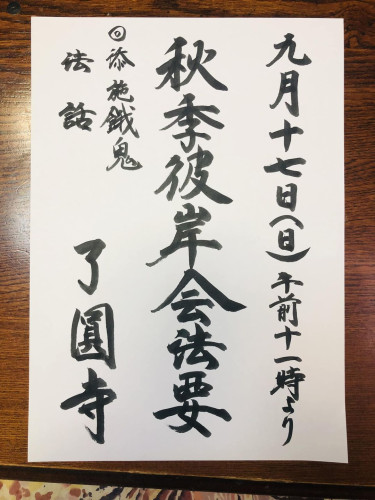 九月十七日(日)午前十一時より
秋季彼岸会法要
◎添施餓鬼
法話
了圓寺